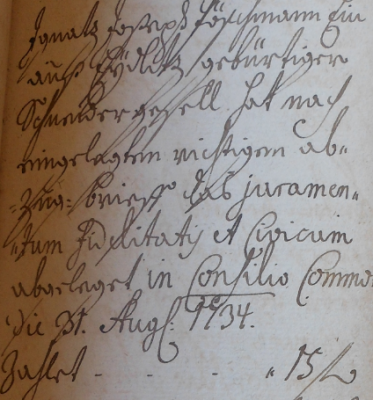 Ignatz Joseph Pöschmann Ein
auß gebürtiger
Schneidergesell hat nach
eingelegten richtigem ab=
=zug=brieff das juramen=
=tum Fidelitatis et Civicum
abgeleget in Consilio Commo
die 31. Augs: 1734.
Zahlet - - - - " 15